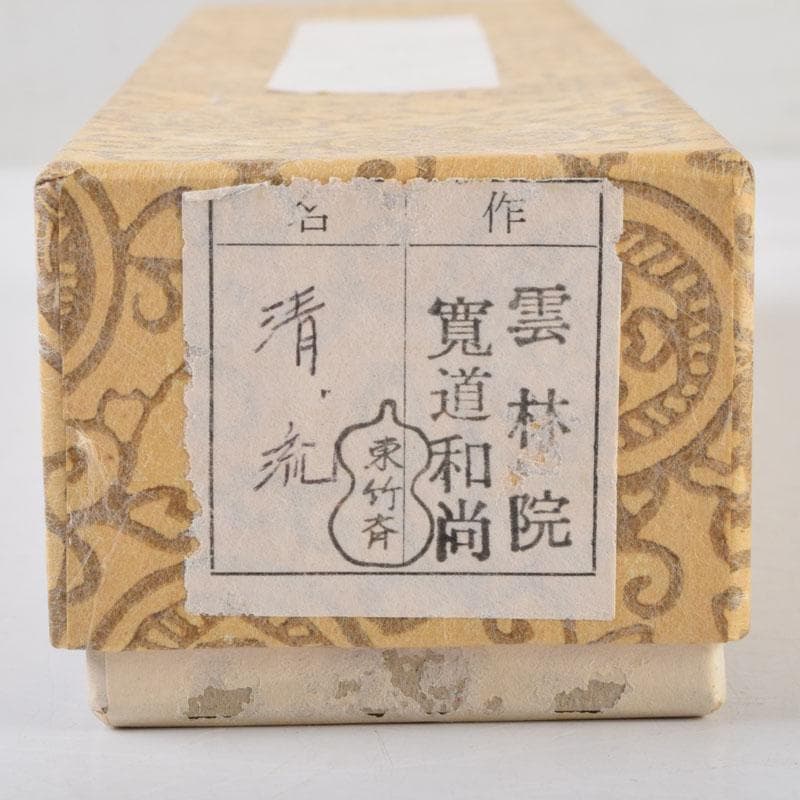 作
雲林院
寛道和尚
名
清流
東竹斉